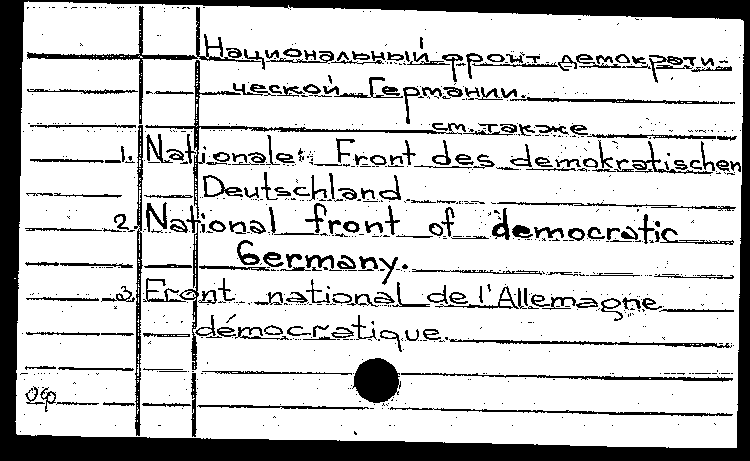 Национальный фронт демократи-
ческой Германии.
см. также
1. Nationale Front des demokratischen
Deutschland
2. National front of democratic
Germany.
3. Front national de l'Allemagne
démocratique.